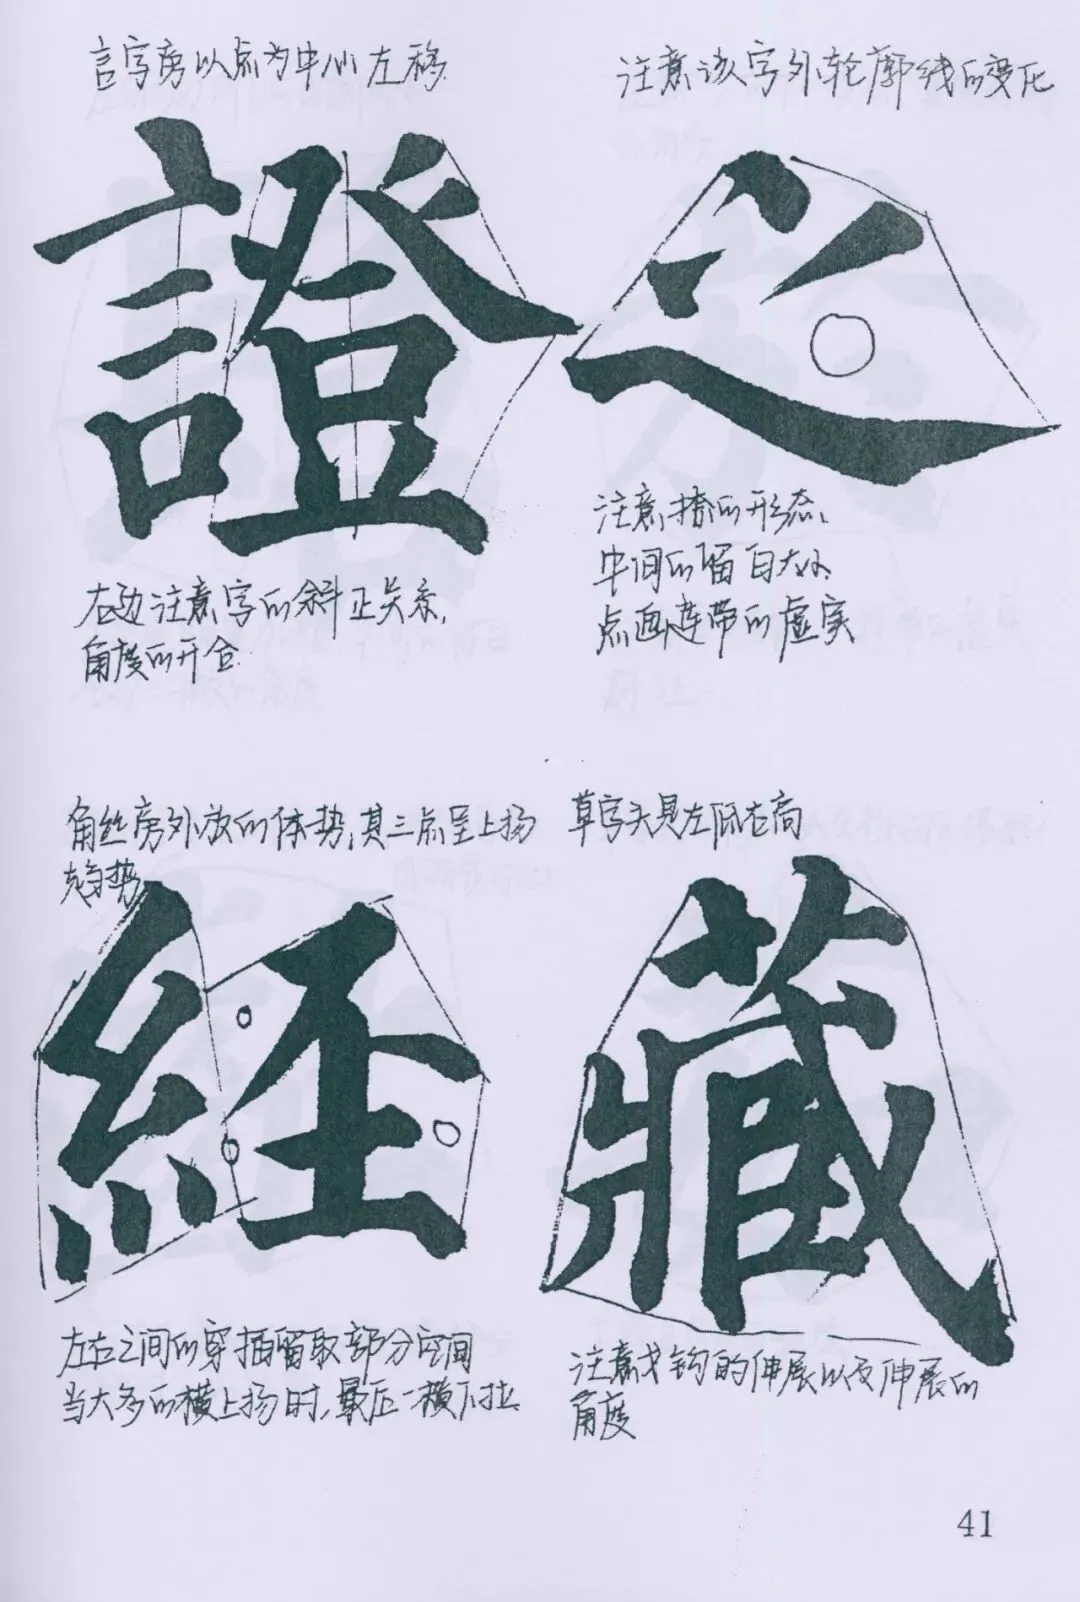 言字旁以点为中心左移
注意该字外轮廓线的变化
證
之
注意捺的形态,
中间的留白大小
点画连带的虚实
右边注意字的斜正关系,
角度的开合.
角丝旁外放的体势,其三点呈上扬
趋势
草字头是左低右高
経
藏
左右之间的穿插留取部分空间
当大多的横上扬时,最后一横下拉
注意戈钩的伸展以及伸展的
角度
41